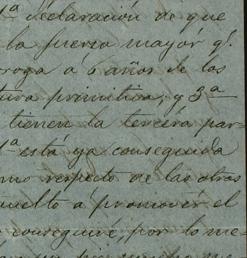 1ª declaración de que
la fuerza mayor q!
rroga a 6 años de los
tura primitiva; y 3ª
tienen la tercera par-
1ª esta ya conseguida
mo respecto de las otras
uelto a promover el
conseguiré, por lo me-